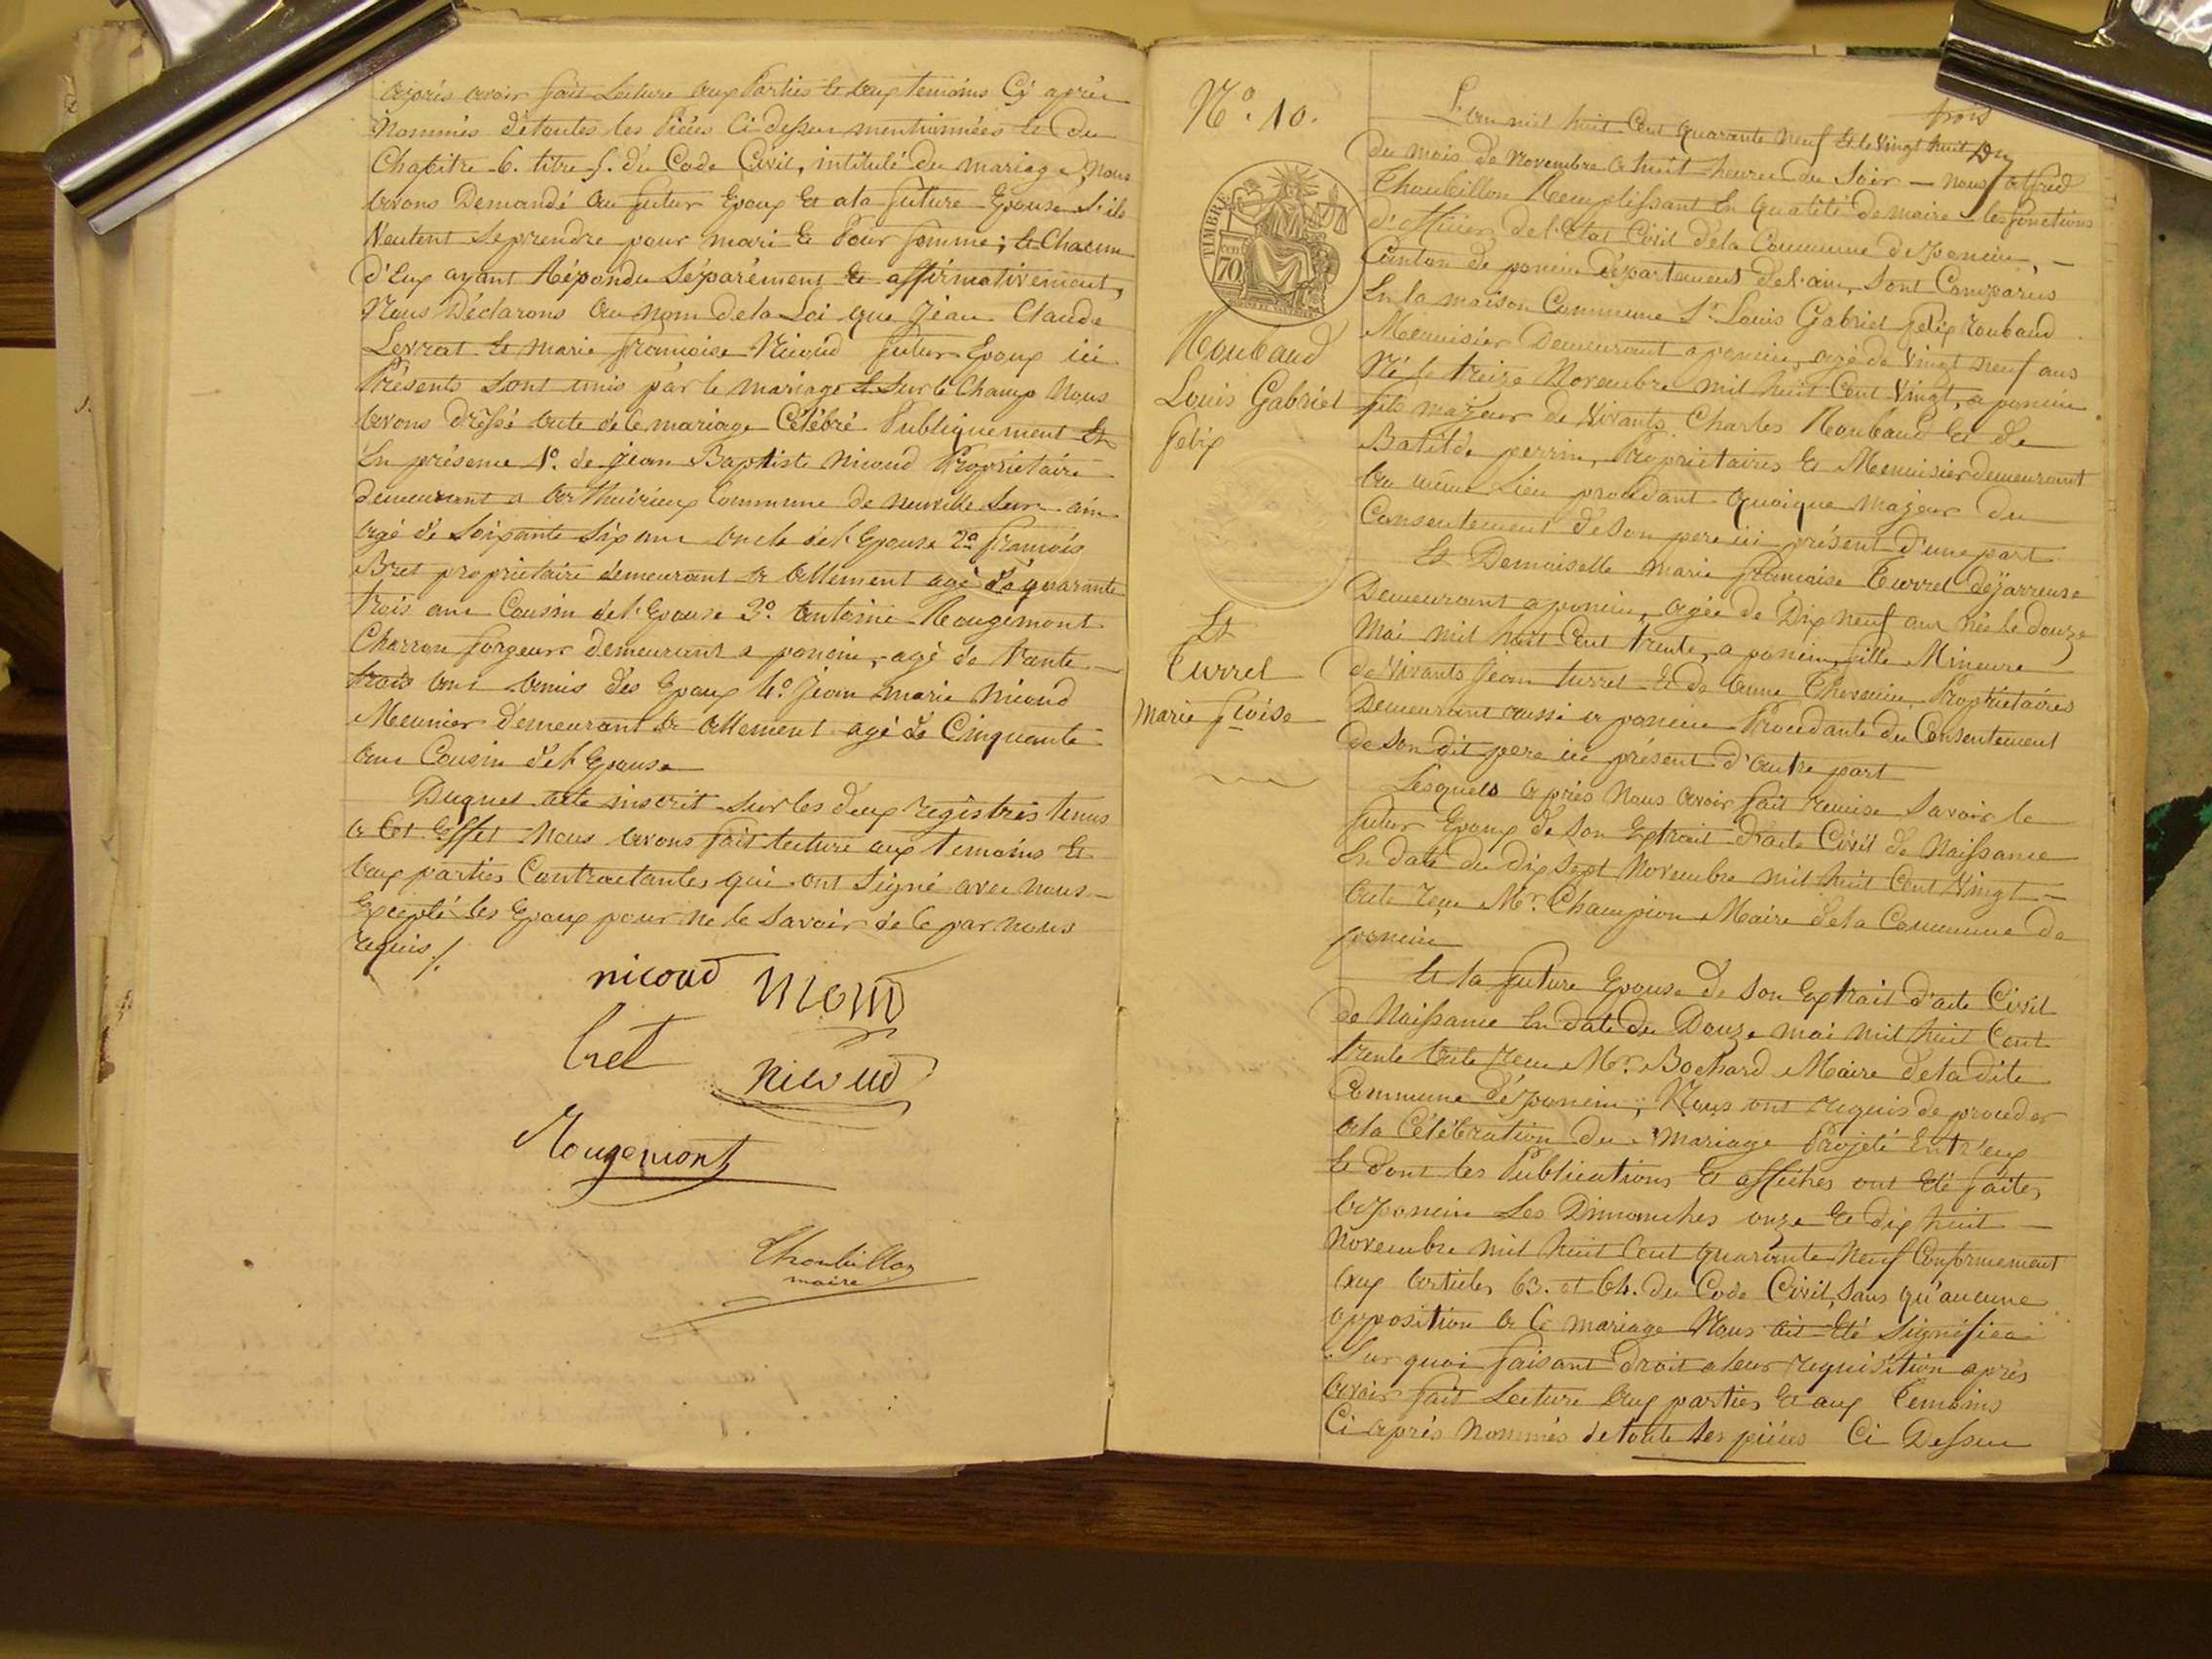 après avoir fait Lecture aux Parties et aux temoins Cy après
Nommés de toutes les Pièces Ci dessus mentionnées et du
Chapitre 6. titre 5. du Code Civil, intitulé du mariage, Nous
avons Demandé au futur Epoux et a la future Epouse S'ils
Veulent se prendre pour mari et Pour femme; et Chacun
d'Eux ayant Répondu Séparément et affirmativement,
Nous Déclarons au Nom de la Loi que Jean Claude
Levrat et marie françoise Nicoud futur Epoux ici
Présents sont unis par le mariage et sur le Champ Nous
avons dressé acte de ce mariage Célébré Publiquement Et
En présence 1º. de jean Baptiste Nicoud Propriétaire
demeurant a Commune de neuville Sur ain
agé de Soixante Six ans oncle de l'Epouse 2º françois
Bret proprietaire demeurant a allement agé de quarante
trois ans Cousin de l'Epouse 3º. antoine Rougemont
Charron forgeur demeurant a poncin, agé de trente
trois ans amis des Epoux 4º. Jean marie Nicoud
Meunier demeurant a allement agé de Cinquante
ans Cousin de l'Epouse
Duquel acte inscrit sur les deux registres tenus
a Cet Effet Nous avons fait lecture aux temoins et
aux parties Contractantes qui ont signé avec nous
Excepté les Epoux pour ne le Savoir de ce par nous
requis ./.
nicoud
bret
Nicoud
Rougemont
Thoubillon
maire
Nº. 10.
TIMBRE
70
Roubaud
Louis Gabriel
felix
Et
Turrel
Marie fçoise
trois
L'an mil huit Cent quarante Neuf Et le Vingt huit
du mois de Novembre a huit heures du Soir — nous alfred
Thoubillon Remplissant En qualité de maire les fonctions
d'officier de l'Etat Civil de la Commune de poncin, —
Canton de poncin Département de l'ain, Sont Comparus
En la maison Commune Sr. Louis Gabriel felix roubaud
Menuisier Demeurant a poncin, agé de Vingt neuf ans
Né le treize Novembre mil huit Cent Vingt, a poncin
fils majeur de Vivants Charles Roubaud et de
Batilde perrin, Propriétaires et Menuisier demeurant
au même Lieu procédant quoique majeur du
Consentement de son pere ici présent d'une part
Et Demoiselle marie françoise Turrel
Demeurant a poncin, agée de Dix neuf ans née le douze
Mai mil huit Cent trente, a poncin, fille Mineure
de Vivants Jean turrel et de anne Thevenin Propriétaires
Demeurant aussi a poncin Procedante du Consentement
de Son dit pere ici présent d'autre part
Lesquels après Nous avoir fait remise Savoir le
futur Epoux de son Extrait d'acte Civil de Naissance
En date du dix sept Novembre mil huit Cent Vingt —
acte reçu Mr. Champion Maire de la Commune de
poncin
Et la future Epouse de Son Extrait d'acte Civil
de Naissance En date du Douze mai mil huit Cent
trente acte reçu Mr. Bochard Maire de la dite
Commune de poncin; Nous ont requis de procéder
a la Célébration du mariage Projeté Entr'eux
et dont les Publications et affiches ont été faites
a poncin Les Dimanches onze et dix huit —
Novembre mil huit Cent quarante Neuf Conformement
aux articles 63. et 64. du Code Civil, Sans qu'aucune
opposition a Ce mariage Nous ait été Signifiée
Sur quoi faisant Droit a leur requisition après
avoir fait Lecture aux parties et aux Temoins
Ci après Nommés de toute les pièces Ci Dessus